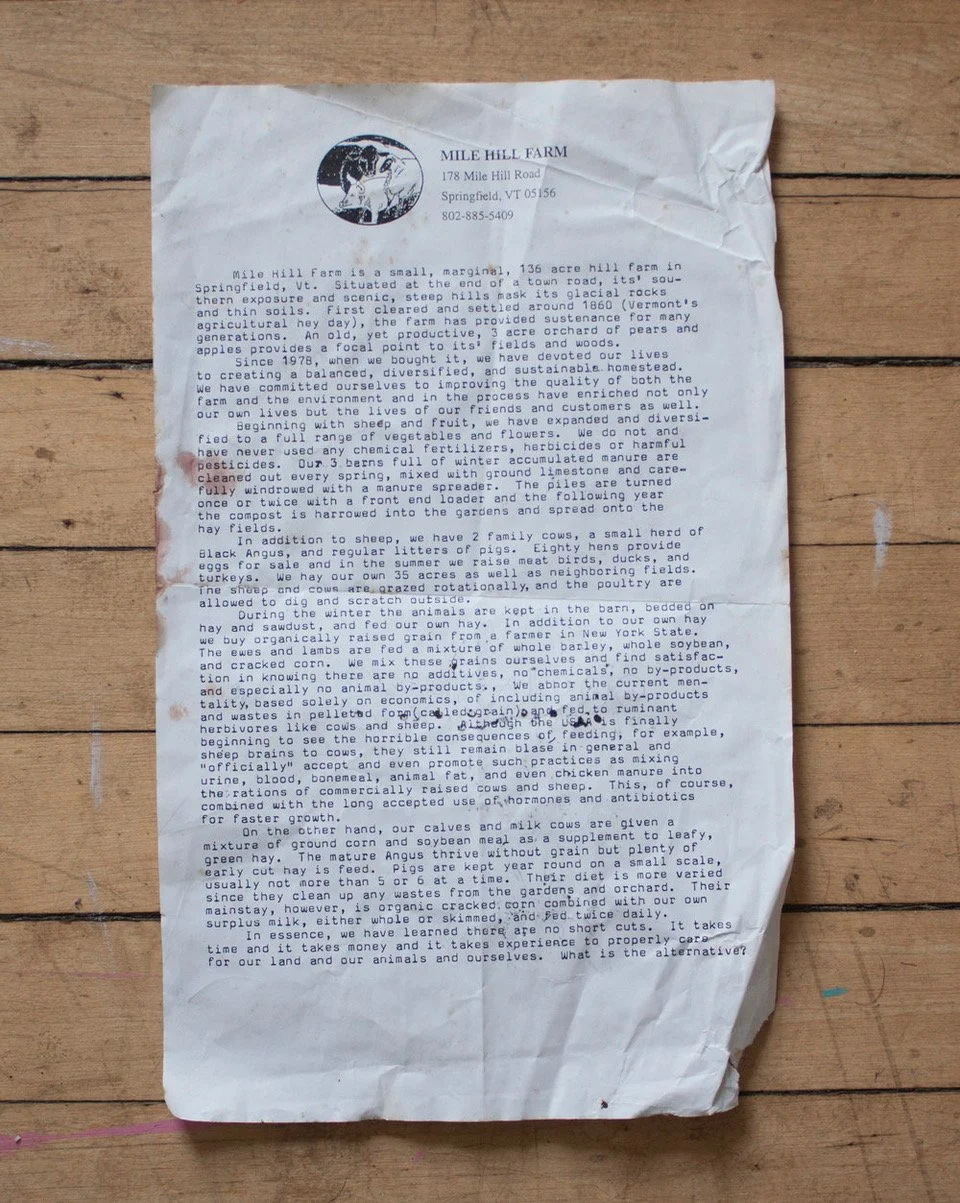 MILE HILL FARM
178 Mile Hill Road
Springfield, VT 05156
802-885-5409
Mile Hill Farm is a small, marginal, 136 acre hill farm in
Springfield, Vt. Situated at the end of a town road, its' sou-
thern exposure and scenic, steep hills mask its glacial rocks
and thin soils. First cleared and settled around 1860 (Vermont's
agricultural hey day), the farm has provided sustenance for many
generations. An old, yet productive, 3 acre orchard of pears and
apples provides a focal point to its' fields and woods.
Since 1978, when we bought it, we have devoted our lives
to creating a balanced, diversified, and sustainable homestead.
We have committed ourselves to improving the quality of both the
farm and the environment and in the process have enriched not only
our own lives but the lives of our friends and customers as well.
Beginning with sheep and fruit, we have expanded and diversi-
fied to a full range of vegetables and flowers. We do not and
have never used any chemical fertilizers, herbicides or harmful
pesticides. Our 3 barns full of winter accumulated manure are
cleaned out every spring, mixed with ground limestone and care-
fully windrowed with a manure spreader. The piles are turned
once or twice with a front end loader and the following year
the compost is harrowed into the gardens and spread onto the
hay fields.
In addition to sheep, we have 2 family cows, a small herd of
Black Angus, and regular litters of pigs. Eighty hens provide
eggs for sale and in the summer we raise meat birds, ducks, and
turkeys. We hay our own 35 acres as well as neighboring fields.
The sheep and cows are grazed rotationally, and the poultry are
allowed to dig and scratch outside.
During the winter the animals are kept in the barn, bedded on
hay and sawdust, and fed our own hay. In addition to our own hay
we buy organically raised grain from a farmer in New York State.
The ewes and lambs are fed a mixture of whole barley, whole soybean,
and cracked corn. We mix these grains ourselves and find satisfac-
tion in knowing there are no additives, no chemicals, no by-products,
and especially no animal by-products., We abhor the current men-
tality, based solely on economics, of including animal by-products
and wastes in pelleted form(called grain) and fed to ruminant
herbivores like cows and sheep. Although the USDA is finally
beginning to see the horrible consequences of feeding, for example,
sheep brains to cows, they still remain blase in general and
"officially" accept and even promote such practices as mixing
urine, blood, bonemeal, animal fat, and even chicken manure into
the rations of commercially raised cows and sheep. This, of course,
combined with the long accepted use of hormones and antibiotics
for faster growth.
On the other hand, our calves and milk cows are given a
mixture of ground corn and soybean meal as a supplement to leafy,
green hay. The mature Angus thrive without grain but plenty of
early cut hay is feed. Pigs are kept year round on a small scale,
usually not more than 5 or 6 at a time. Their diet is more varied
since they clean up any wastes from the gardens and orchard. Their
mainstay, however, is organic cracked corn combined with our own
surplus milk, either whole or skimmed, and fed twice daily.
In essence, we have learned there are no short cuts. It takes
time and it takes money and it takes experience to properly care
for our land and our animals and ourselves. What is the alternative?